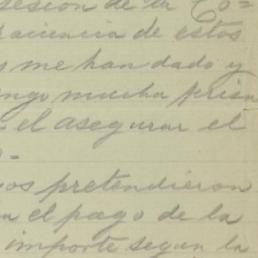 sesión de la Co=
ciencia de estos
s me han dado y
engo mucha prisa
n el asegurar el
o=
os pretendieron
n el pago de la
importe segun la